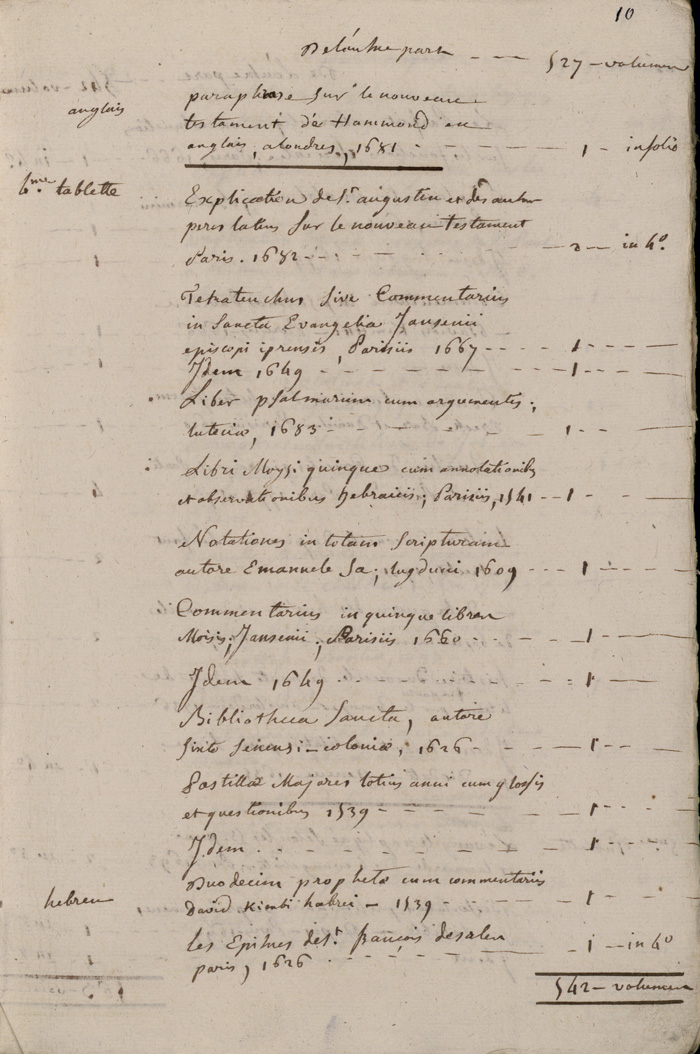 10
De l'autre part - - - 527 - volumes
anglais
paraphrase sur le nouveau
testament de Hammond en
anglais, a londres, 1681 - - - 1 - infolio
6me. tablette
Explication de st. augustin et des autres
peres latins sur le nouveau testament
Paris. 1682 - - - 2 - in 4°.
Tetrateuchus sive Commentarius
in Sancta Evangelia Jansenii
episcopi iprensis, Parisiis 1667 - - - 1 - - -
Idem 1649 - - - 1 - - -
Liber psalmorum cum argumentis;
luteciæ, 1683 - - - 1 - - -
Libri Moysi quinque cum annotationibs
et observationibus hebraicis; Parisiis, 1541 - - 1 - - -
Notationes in totam scripturam
autore Emanuele Sa; lugduni, 1609 - - - 1 - - -
Commentarius in quinque libros
Moisis; Jansenii; Parisiis 1660 - - - 1 - - -
Idem 1649 - - - 1 - - -
Bibliotheca Sancta, autore
sixto senensi - coloniæ, 1626 - - - 1 - - -
Postillæ Majores totius anni cum glossis
et questionibus 1539 - - - 1 - - -
Idem - - - 1 - - -
hebreu
Duodecim prophetæ cum commentariis
David Kimhi hebrei - 1539 - - - 1 - - -
les Epitres de st. françois de sales
paris, 1626 - - - 1 - in 4°
542 - volumes